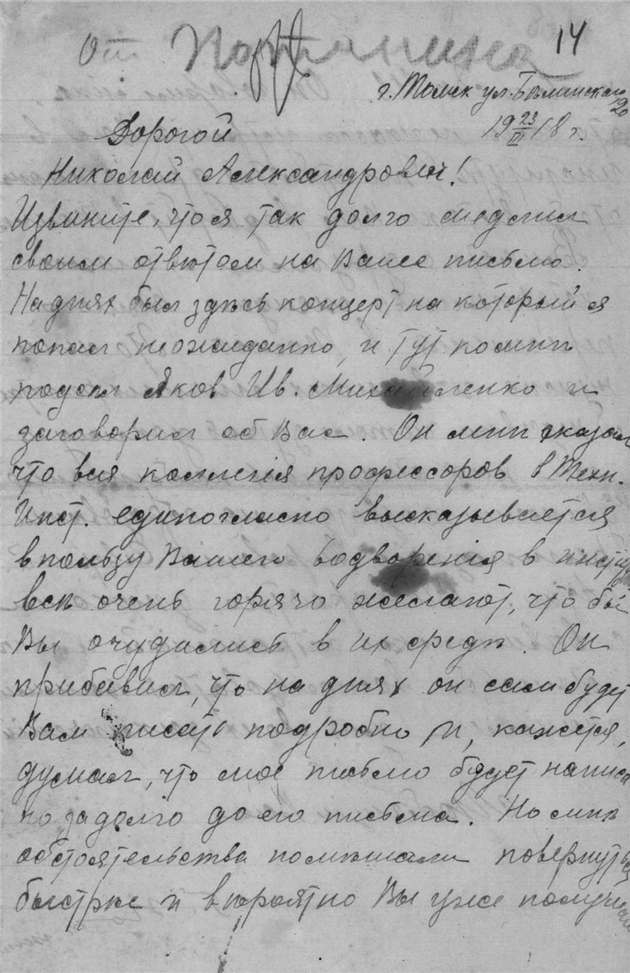 От Потанина 14
г. Томск ул. Бѣлинскаго 20
19 23/III 18 г.
Дорогой
Николай Александрович!
Извините, что я так долго медлил
своим отвѣтом на Ваше письмо.
На днях был здѣсь концерт на который я
попал неожиданно, и тут ко мнѣ
подсел Яков Ив. Михайленко и
заговорил об Вас. Он мнѣ сказал
что вся коллегія профессоров в Техн.
Инст. единогласно высказывается
в пользу Вашего водворенія в инсти
всѣ очень горячо желают, что бы
Вы очутились в их средѣ. Он
прибавил, что на днях он сам будет
Вам писать подробно и, кажется,
думал, что мое письмо будет написа
но задолго до его письма. Но мнѣ
обстоятельства помѣшали повернуться
быстрѣе и вѣроятно Вы уже получили